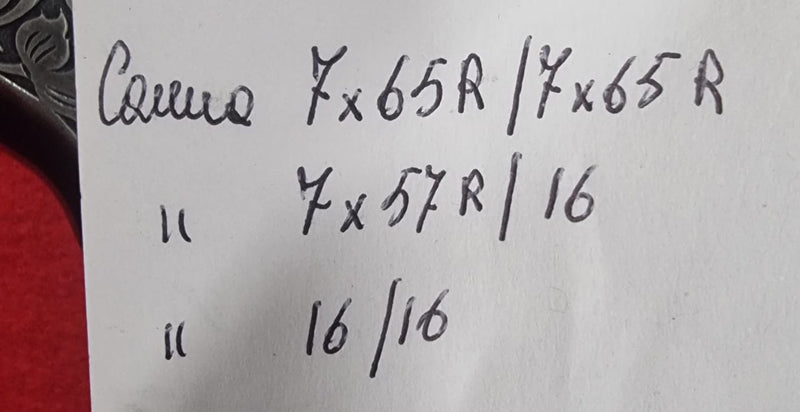 7x65R/7x65R
" 7x57R/16
" 16/16